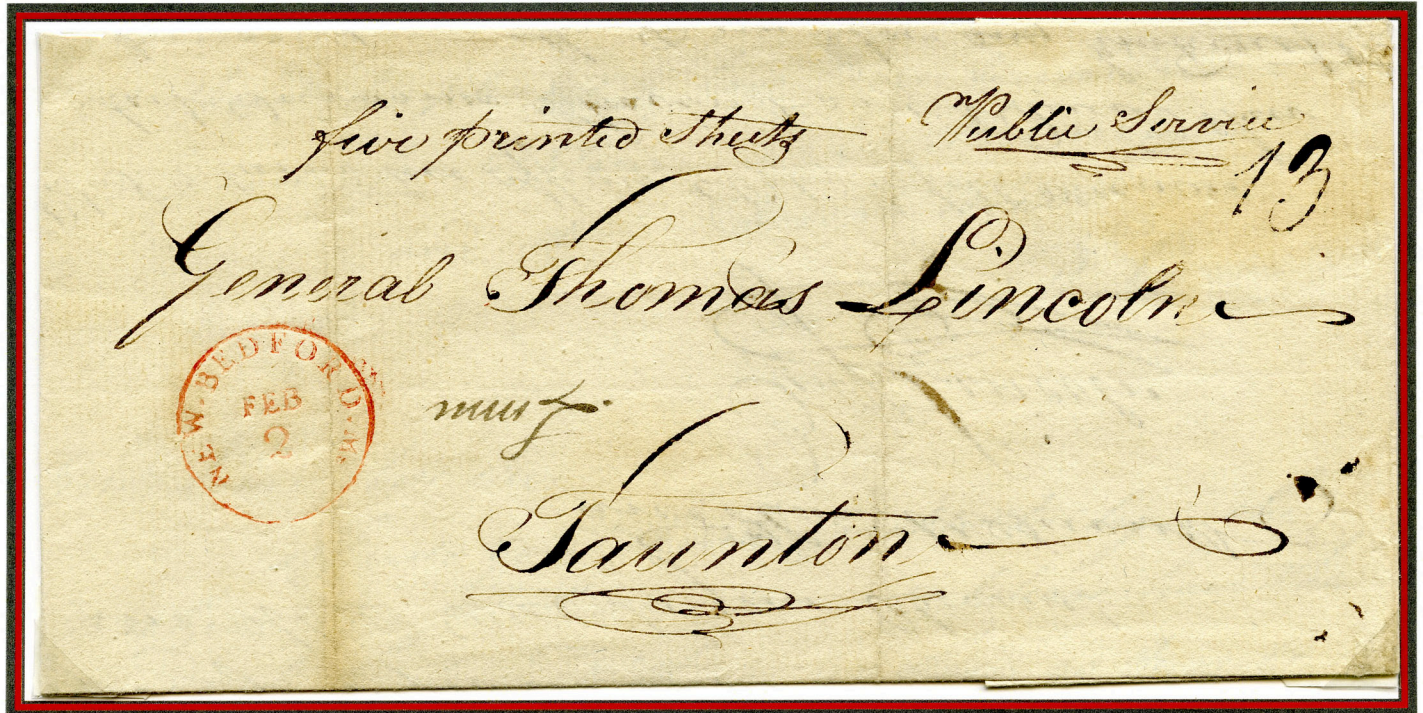 five printed sheets
Public Service
13
General Thomas Lincoln
NEW·BEDFORD·Ms.
FEB
2
Taunton